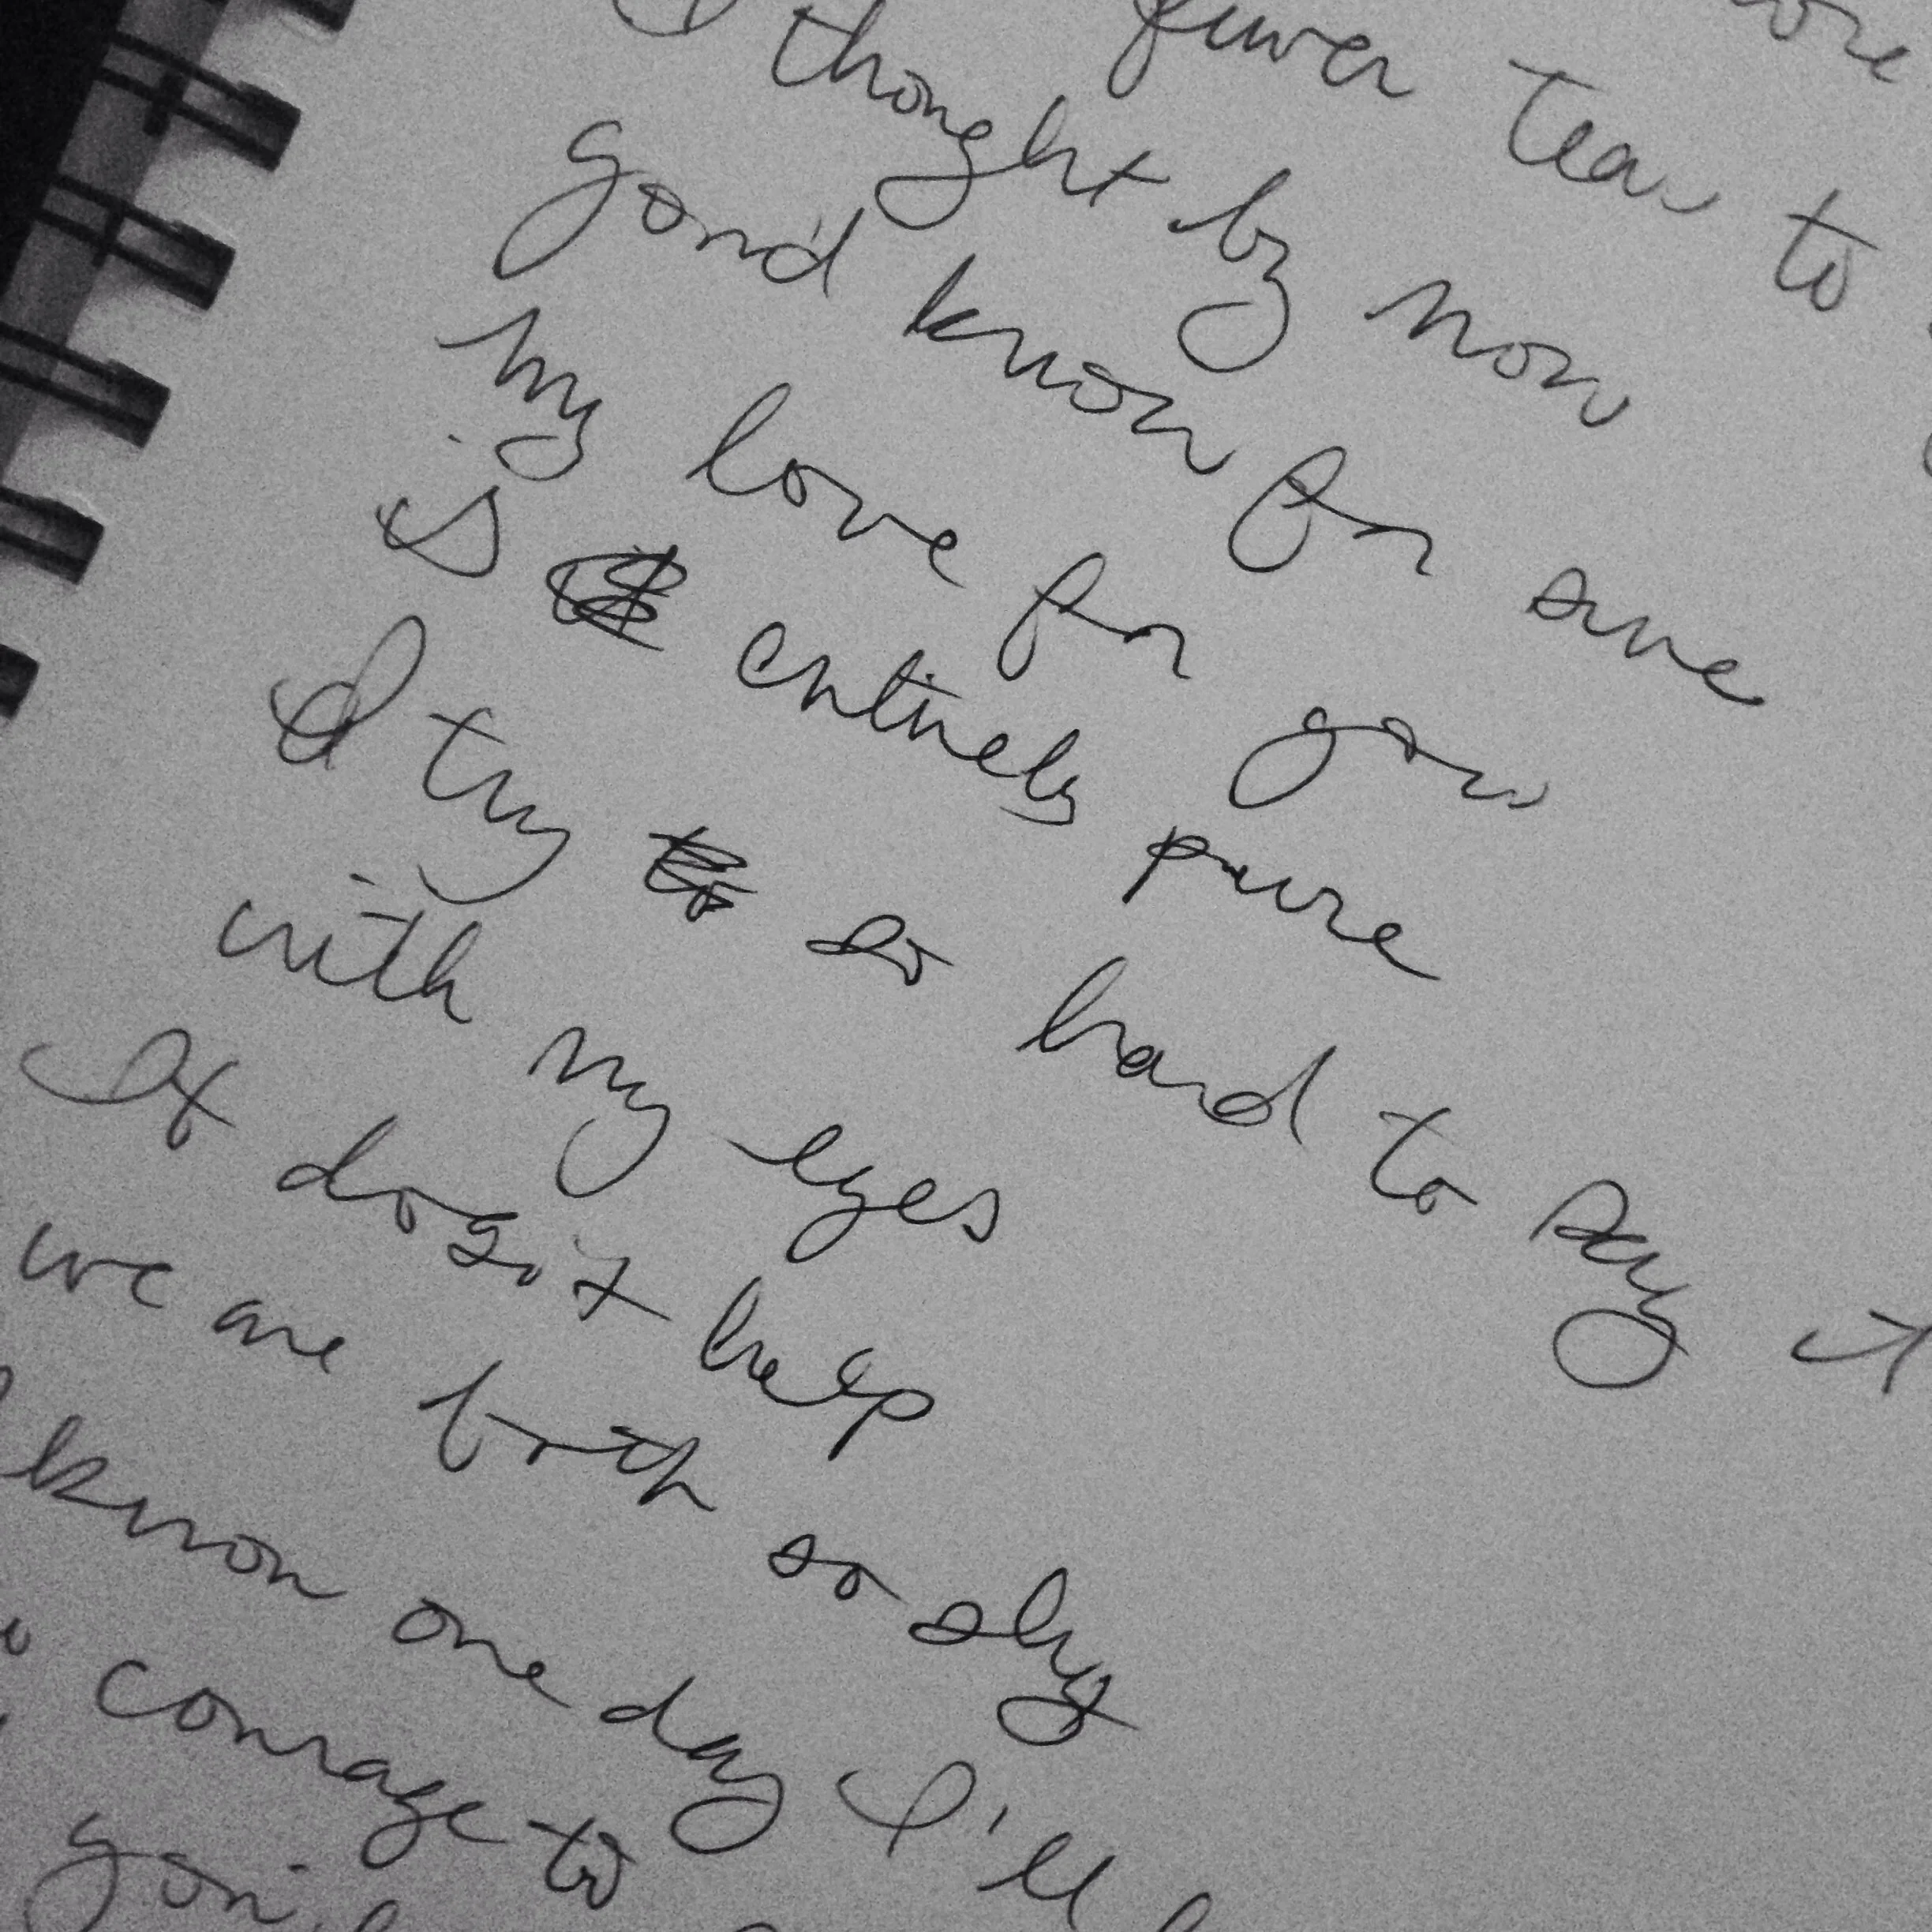 fewer tears to
I thought by now
you'd know for sure
my love for you
is entirely pure
I try so hard to say it
with my eyes
It dosn't help
we are both so shy
know one day I'll
courage to